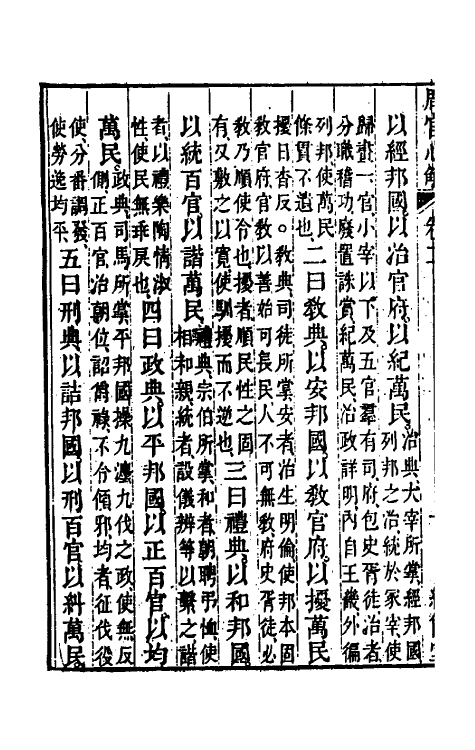 周官心解 卷二
以經邦國以治官府以紀萬民治典大宰所掌經邦國
列邦之治統於冢宰使
歸畫一官小宰以下及五官羣有司府包史胥徒治者
分職稽功廢置誅賞紀萬民治政詳明內自王畿外徧
列邦使萬民
條貫不遺也
二曰敎典以安邦國以敎官府以擾萬民
擾日杳反。敎典司徒所掌安者治生明倫使邦本固
敎官府官敎以善始可長民人不可無敎府史胥徒必
敎乃順使令也擾者順民性之固
有又敷之以寬使馴擾而不逆也
三曰禮典以和邦國
以統百官以諧萬民禮典宗伯所掌和者朝聘弔恤使
相和親統者設儀辨等以繫之諧
者以禮樂陶情淑
性使民無乖戾也
四曰政典以平邦國以正百官以均
萬民政典司馬所掌平邦國操九灋九伐之政使無反
側正百官治朝位詔爵祿不令傾邪均者征伐役
使分番調發
使勞逸均平
五曰刑典以詰邦國以刑百官以糾萬民